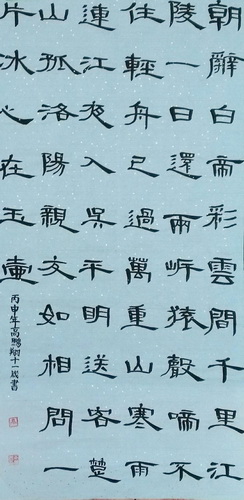 朝辭白帝彩雲間千里江
陵一日還兩岸猿聲啼不
住輕舟已過萬重山寒雨
連江夜入吳平明送客楚
山孤洛陽親友如相問一
片冰心在玉壺
丙申年高鵬翔十一歲書